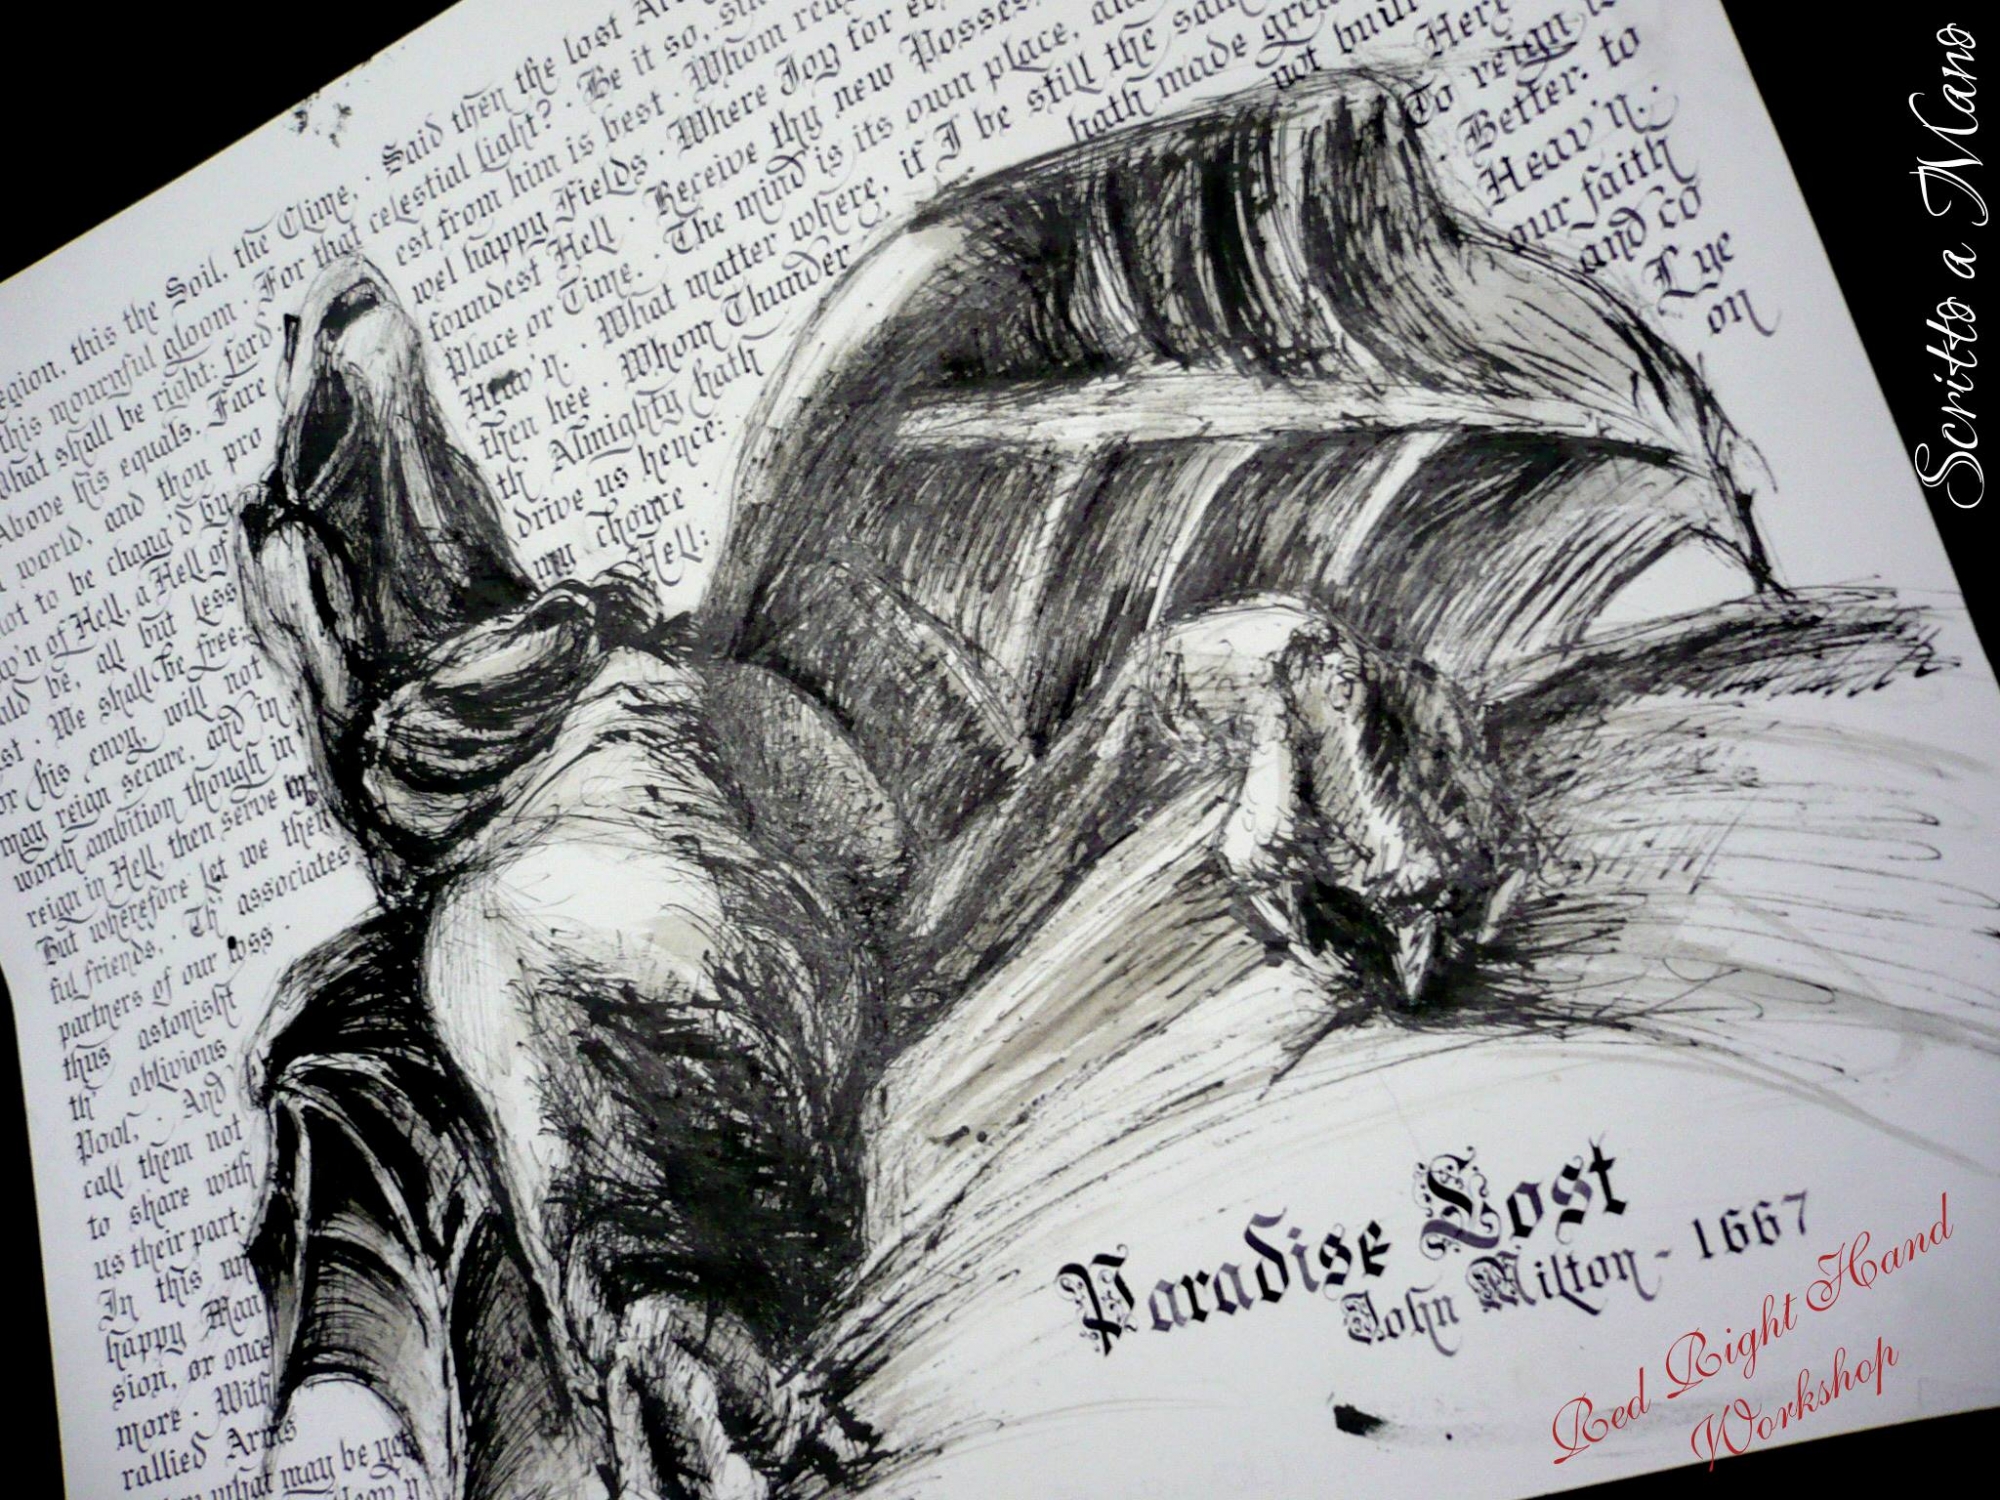 Said then the lost
egion, this the Soil, the Clime,
this mournful gloom · For that celestial light? · Be it so,
What shall be right: fard est from him is best · Whom
Above his equals. Fare wel happy Fields · Where Joy for
world, and thou pro foundest Hell · Receive thy new
not to be chang'd by Place or Time. · The mind is its own place,
w'n of Hell, a Hell of Heav'n. · What matter where, if I be still the
be, all but less then hee · Whom Thunder hath made
st · We shall be free: th' Almighty hath not built
or his envy, will not drive us hence:
may reign secure, and in my choyce
worth ambition though in Hell:
reign in Hell, then serve in
But wherefore let we then
ful friends, · Th' associates
partners of our loss ·
thus astonisht
th' oblivious
Pool, · And
call them not
to share with
us their part.
In this
happy Man
sion, or once
more · With
rallied Arms
what may be yet
Here
To reign
· Better. to
Heav'n. ·
our faith
and co
Lye
on
Paradise Lost
John Milton - 1667
Red Right Hand
Workshop
Scritto a Mano